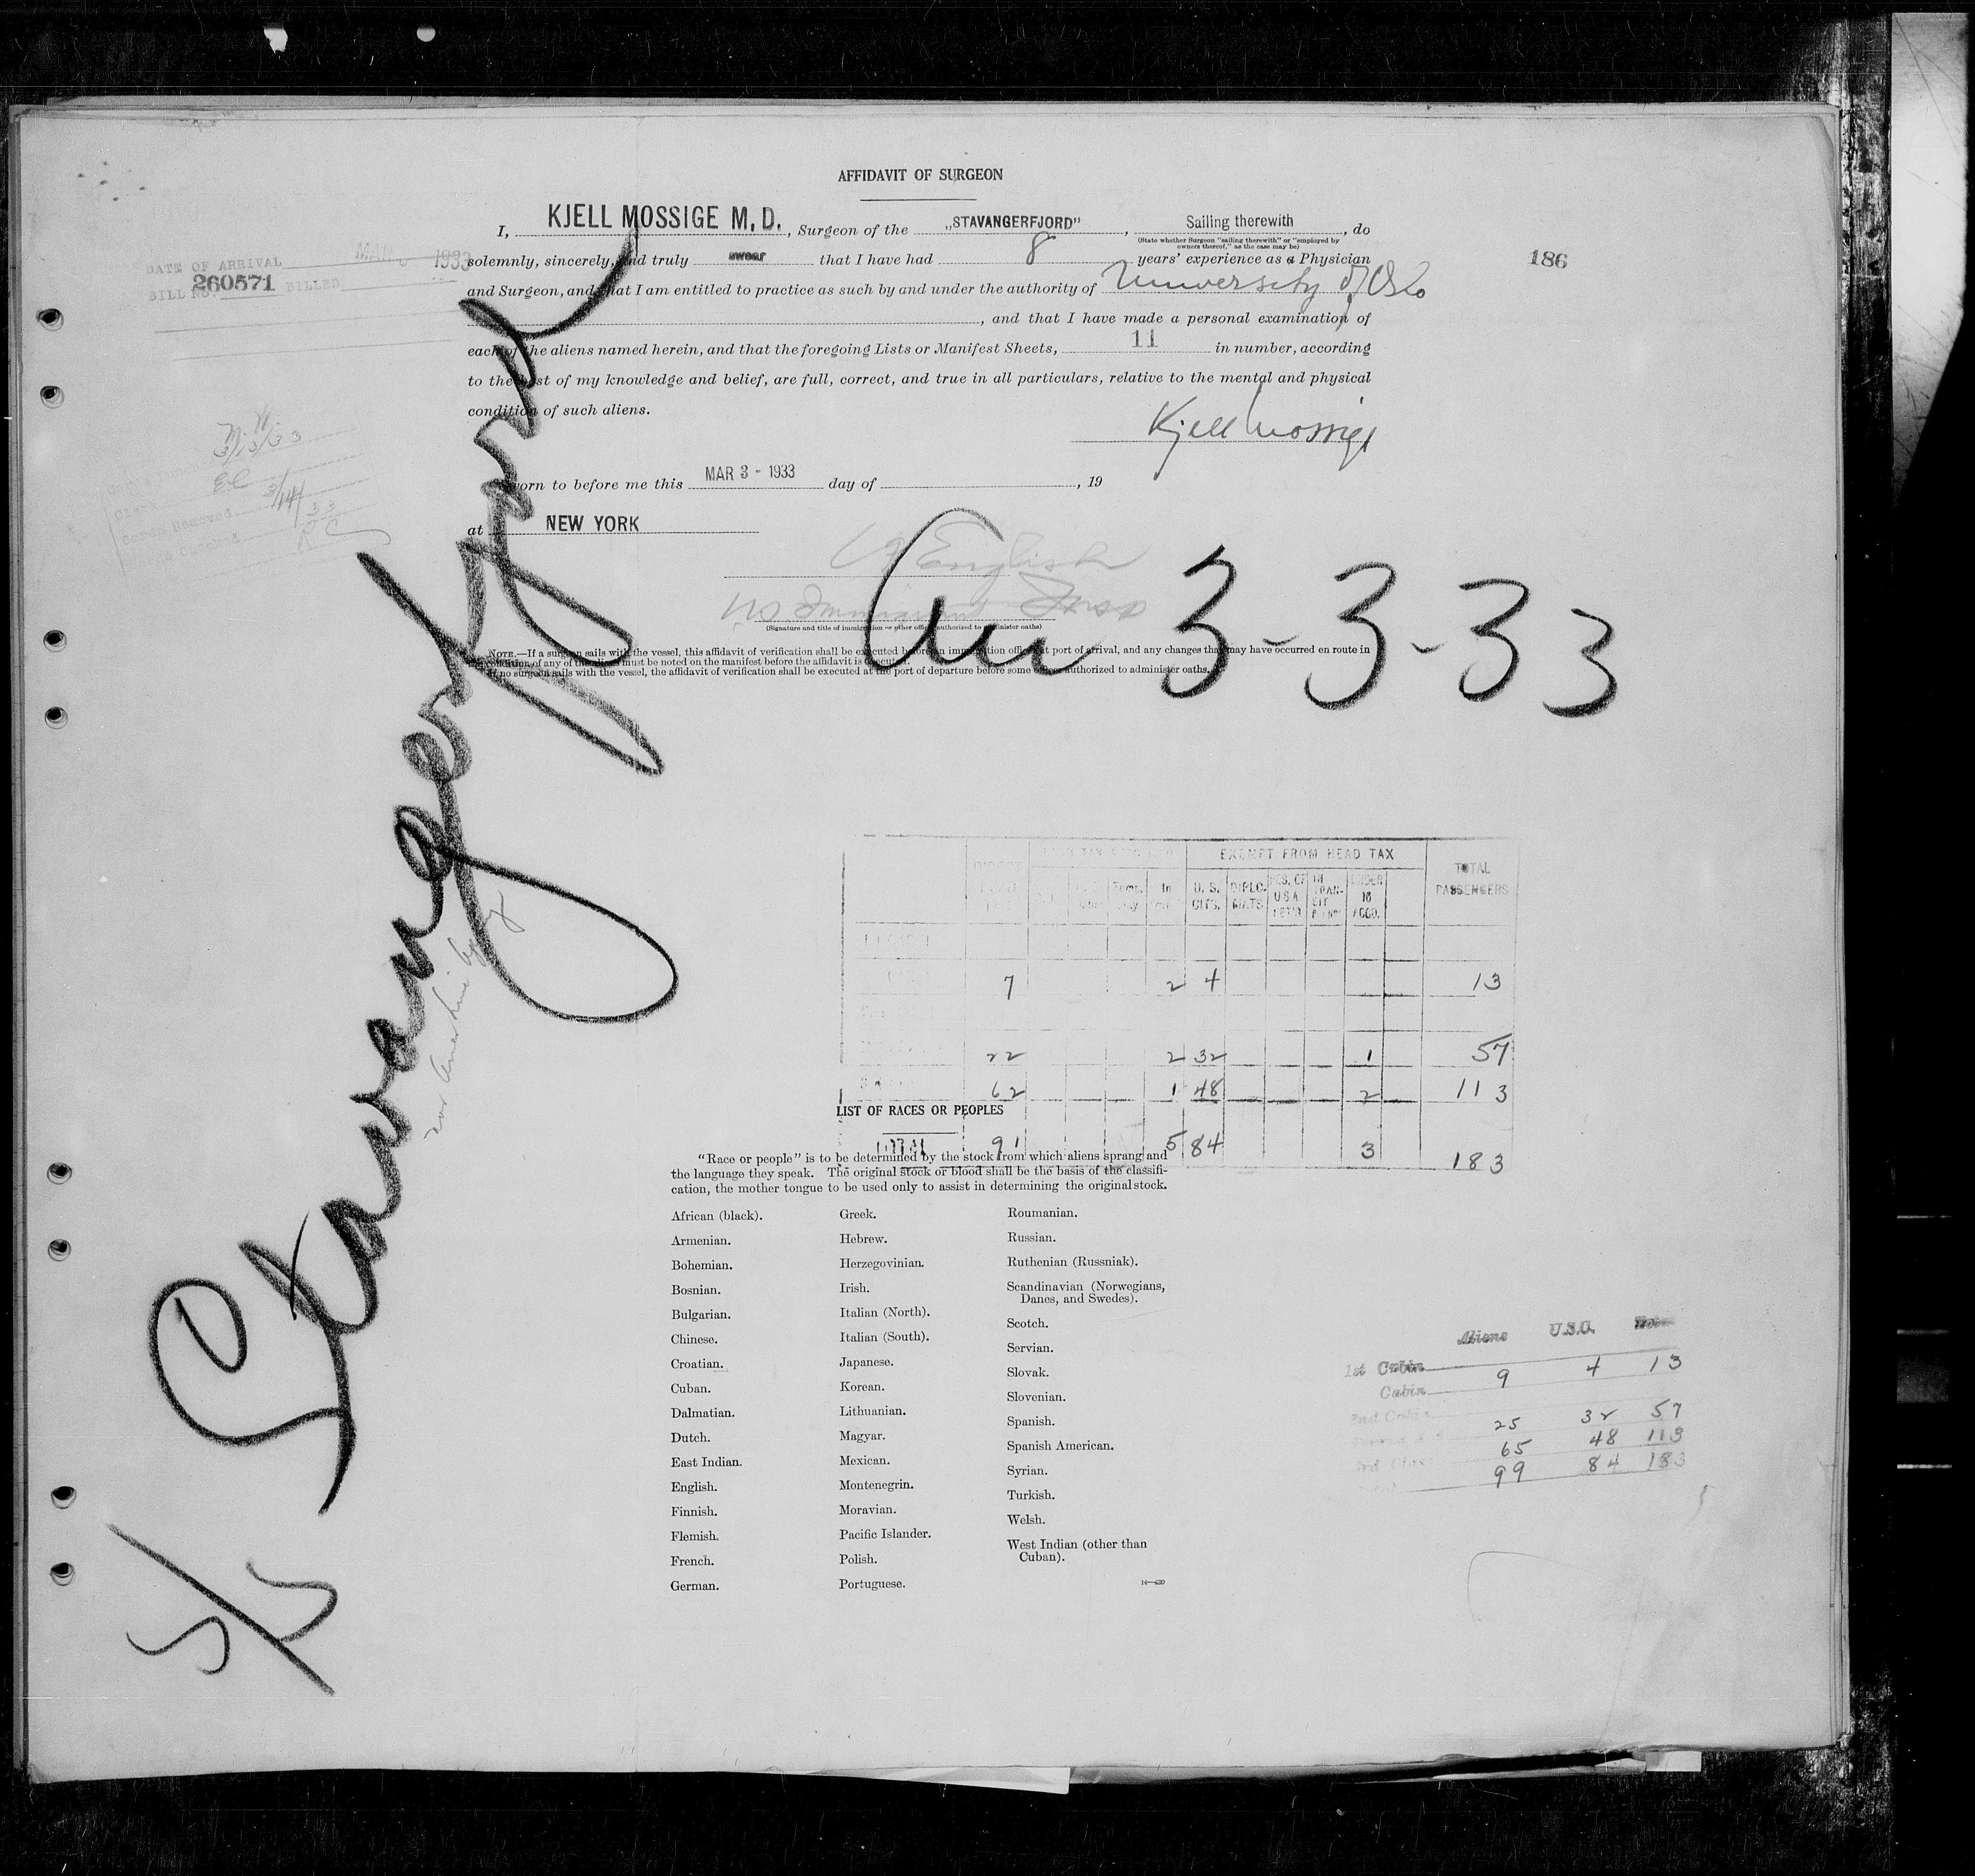 AFFIDAVIT OF SURGEON
I, KJELL MOSSIGE M.D., Surgeon of the „STAVANGERFJORD", Sailing therewith, do
(State whether Surgeon "sailing therewith" or "employed by owners thereof," as the case may be)
solemnly, sincerely, and truly swear that I have had 8 years' experience as a Physician
and Surgeon, and that I am entitled to practice as such by and under the authority of University of Oslo
, and that I have made a personal examination of
each of the aliens named herein, and that the foregoing Lists or Manifest Sheets, 11 in number, according
to the best of my knowledge and belief, are full, correct, and true in all particulars, relative to the mental and physical
condition of such aliens.
Kjell Mossige
Sworn to before me this MAR 3 - 1933 day of , 19
at NEW YORK
English
(Signature and title of immigration or other officer authorized to administer oaths)
NOTE.—If a surgeon sails with the vessel, this affidavit of verification shall be executed before an immigration officer at port of arrival, and any changes that may have occurred en route in
the condition of any of the aliens must be noted on the manifest before the affidavit is executed.
If no surgeon sails with the vessel, the affidavit of verification shall be executed at the port of departure before some officer authorized to administer oaths.
186
DATE OF ARRIVAL MAR 1933
BILL NO. 260571 BILLED
3/13/33
3/14/33
S/S Stavangerfjord
Arr 3-3-33
EXEMPT FROM HEAD TAX
TOTAL PASSENGERS
U. S. CITS.
DIPLO-MATS
RES. OF U.S.A. RET'G
IN TRAN-SIT
UNDER 16 ACCO.
7 2 4 13
22 2 32 1 57
62 1 48 2 113
TOTAL 91 5 84 3 183
LIST OF RACES OR PEOPLES
"Race or people" is to be determined by the stock from which aliens sprang and
the language they speak. The original stock or blood shall be the basis of the classifi-
cation, the mother tongue to be used only to assist in determining the original stock.
African (black).
Armenian.
Bohemian.
Bosnian.
Bulgarian.
Chinese.
Croatian.
Cuban.
Dalmatian.
Dutch.
East Indian.
English.
Finnish.
Flemish.
French.
German.
Greek.
Hebrew.
Herzegovinian.
Irish.
Italian (North).
Italian (South).
Japanese.
Korean.
Lithuanian.
Magyar.
Mexican.
Montenegrin.
Moravian.
Pacific Islander.
Polish.
Portuguese.
Roumanian.
Russian.
Ruthenian (Russniak).
Scandinavian (Norwegians,
Danes, and Swedes).
Scotch.
Servian.
Slovak.
Slovenian.
Spanish.
Spanish American.
Syrian.
Turkish.
Welsh.
West Indian (other than
Cuban).
14—430
Aliens U.S.C. Total
1st Cabin
Cabin 9 4 13
2nd Cabin 25 32 57
65 48 113
99 84 183